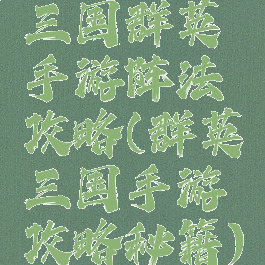 三国群英
手游阵法
攻略(群英
三国手游
攻略秘籍)